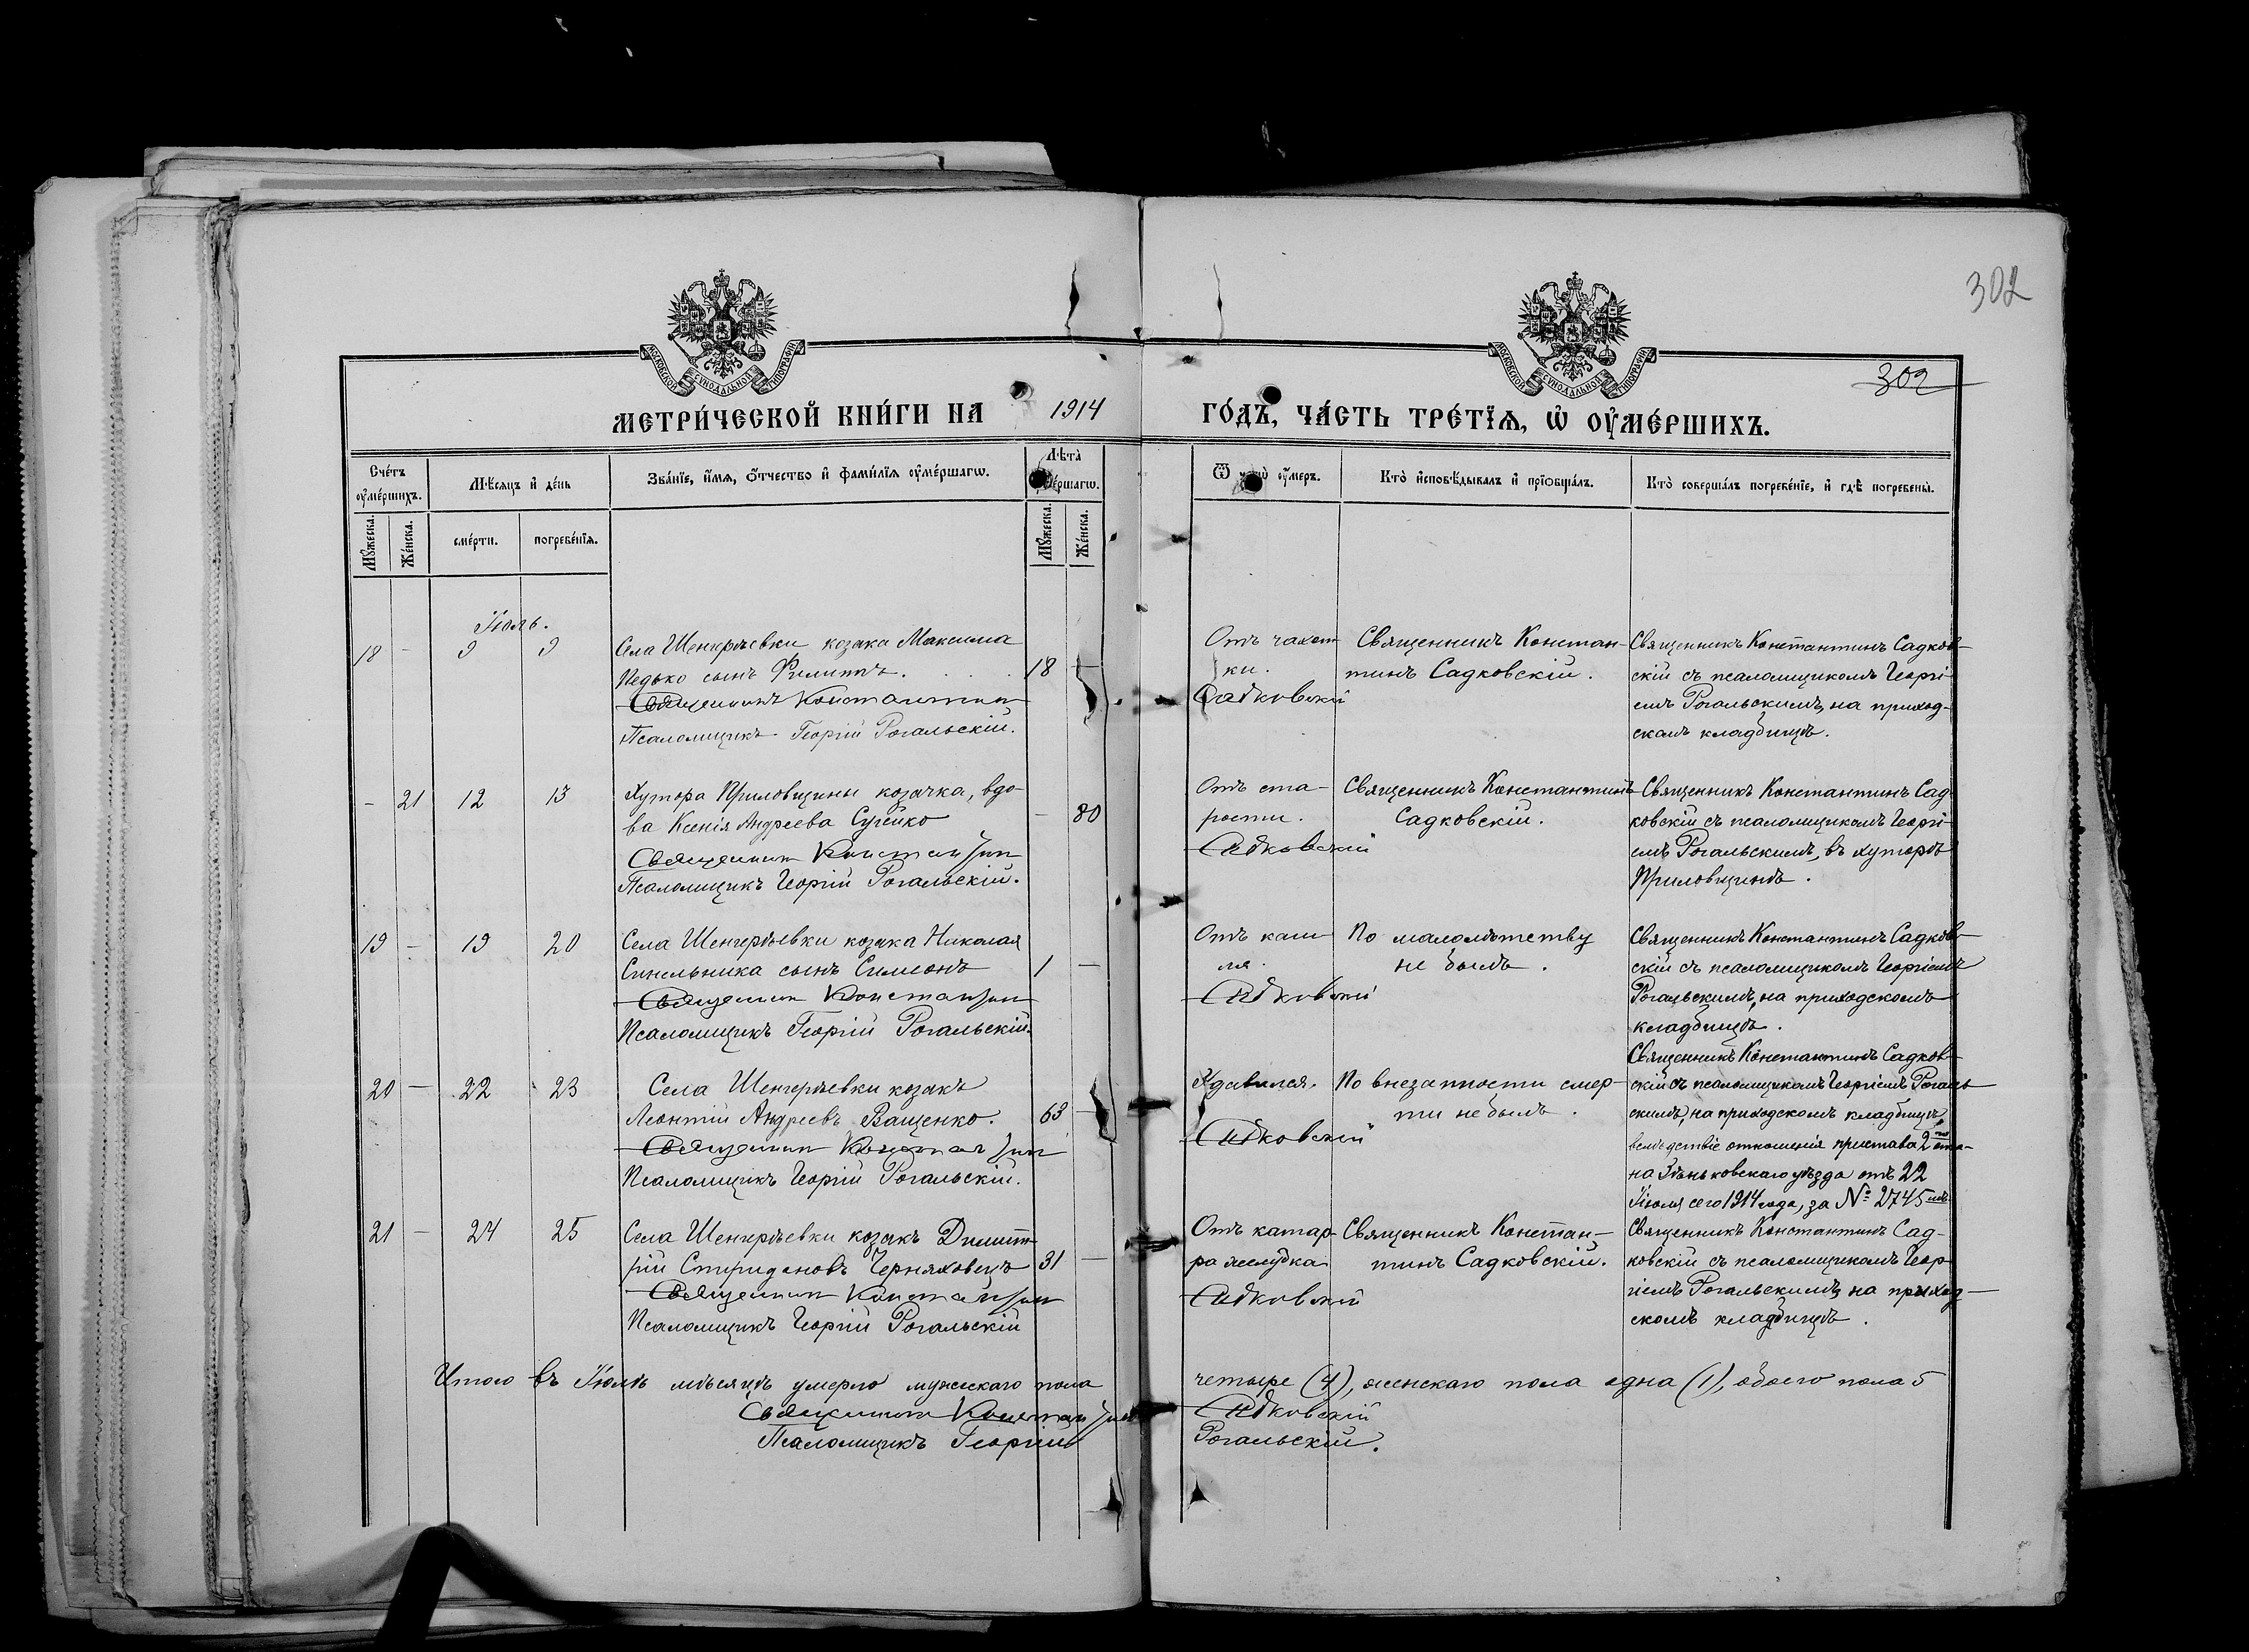 302
302
МОСКОВСКОЙ СѴНОДАЛЬНОЙ ТИПОГРАФІИ
МОСКОВСКОЙ СѴНОДАЛЬНОЙ ТИПОГРАФІИ
МЕТРИ́ЧЕСКОЙ КНИ́ГИ НА 1914 ГО́ДЪ, ЧА́СТЬ ТРЕ́ТЇѦ, Ѡ҆ ОУ҆МЕ́РШИХЪ.
Сче́тъ оу҆ме́ршихъ.
Мѣ́сѧцъ и҆ де́нь
Зва́нїе, и҆́мѧ, ѻ҆́тчество и҆ фами́лїѧ оу҆ме́ршагѡ.
Лѣ́та
Ѿ оу҆́меръ.
Кто̀ и҆сповѣ́дывалъ и҆ прїѡбща́лъ.
Кто̀ соверша́лъ погребе́нїе, и҆ гдѣ̀ погребены̀.
Мꙋ́жеска.
Же́нска.
сме́рти.
погребе́нїѧ.
Мꙋ́жеска.
Же́нска.
Іюль.
18 - 9 9
Села Шенгріевки козака Максима
Педько сынъ Филиппъ.
18 -
Священникъ Константин
Псаломщикъ Георгій Рогальскій.
Отъ чахот
ки.
Садковскій
Священникъ Констан-
тинъ Садковскій.
Священникъ Константинъ Садков-
скій съ псаломщикомъ Георгі-
емъ Рогальскимъ, на приход-
скомъ кладбищѣ.
- 21 12 13
Хутора Приловщины козачка, вдо-
ва Ксенія Андреева Сугейко
- 80
Священник Константин
Псаломщикъ Георгій Рогальскій.
Отъ ста-
рости.
Садковскій
Священникъ Константинъ
Садковскій.
Священникъ Константинъ Сад-
ковскій съ псаломщикомъ Георгі-
емъ Рогальскимъ, въ хуторѣ
Приловщинѣ.
19 - 19 20
Села Шенгеріевки козака Николая
Синельника сынъ Симеонъ
1 -
Священник Константин
Псаломщикъ Георгій Рогальскій.
Отъ каш-
ля.
Садковскій
По малолѣтству
не былъ.
Священникъ Константинъ Садков-
скій съ псаломщикомъ Георгіемъ
Рогальскимъ, на приходскомъ
кладбищѣ.
20 - 22 23
Села Шенгеріевки козакъ
Леонтій Андреевъ Ващенко.
63 -
Священник Константин
Псаломщикъ Георгій Рогальскій.
Удавился.
Садковскій
По внезапности смер-
ти не былъ.
Священникъ Константинъ Садков-
скій съ псаломщикомъ Георгіемъ Рогаль-
скимъ, на приходскомъ кладбищѣ,
вслѣдствіе отношенія пристава 2го ста-
на Зѣньковскаго уѣзда отъ 22
Іюля сего 1914 года, за № 2745
21 - 24 25
Села Шенгеріевки козакъ Димит-
рій Спиридоновъ Черняховецъ
31 -
Священник Константин
Псаломщикъ Георгій Рогальскій
Отъ катар-
ра желудка
Садковскій
Священникъ Констан-
тинъ Садковскій.
Священникъ Константинъ Сад-
ковскій съ псаломщикомъ Геор-
гіемъ Рогальскимъ, на приход-
скомъ кладбищѣ.
Итого въ Іюлѣ мѣсяцѣ умерло мужскаго пола четыре (4), женскаго пола одна (1), обоего пола 5
Священник Константин Садковскій
Псаломщикъ Георгій Рогальскій.